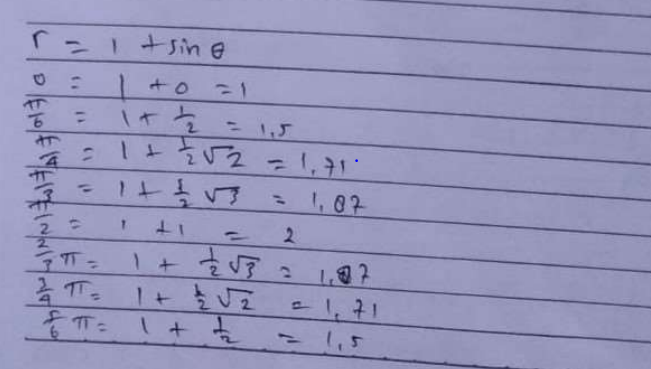 r = 1 + sin θ
0 = 1 + 0 = 1
π/6 = 1 + 1/2 = 1,5
π/4 = 1 + 1/2 √2 = 1,71
π/3 = 1 + 1/2 √3 = 1,87
π/2 = 1 + 1 = 2
2/3 π = 1 + 1/2 √3 = 1,87
3/4 π = 1 + 1/2 √2 = 1,71
5/6 π = 1 + 1/2 = 1,5